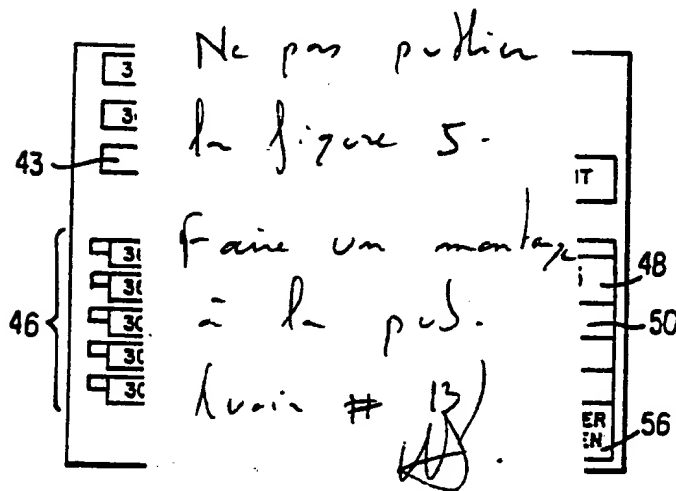 Ne pas publier
la figure 5.
Faire un montage
à la pub.
# 13
43
46
3
3
30
30
30
30
30
IT
48
50
ER
EN
56